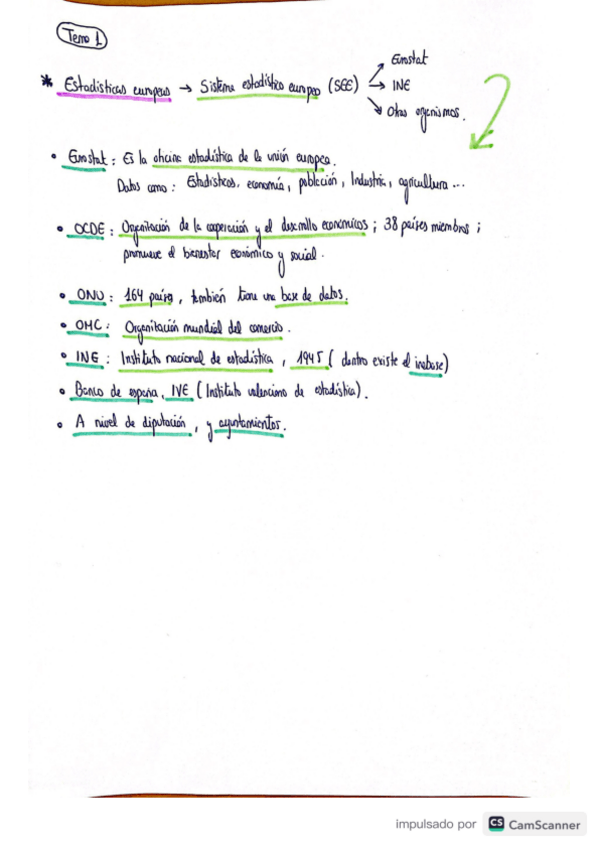 Tema 1
* Estadísticas europeas → Sistema estadístico europeo (SEE) → Eurostat
→ INE
→ Otros organismos.
• Eurostat : Es la oficina estadística de la unión europea.
Datos como : Estadísticas, economía, población, Industria, agricultura ...
• OCDE : Organización de la cooperación y el desarrollo económicos ; 38 países miembros ;
promueve el bienestar económico y social.
• ONU : 164 países, también tiene una base de datos.
• OMC : Organización mundial del comercio.
• INE : Instituto nacional de estadística, 1945 ( dentro existe el inebase)
• Banco de españa, IVE ( Instituto valenciano de estadística).
• A nivel de diputación, y ayuntamientos.
impulsado por CS CamScanner